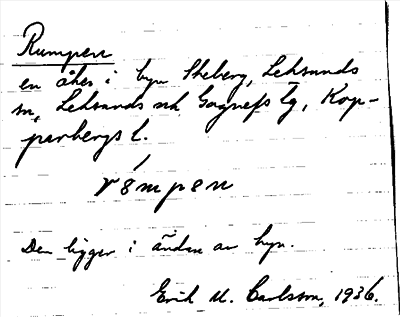 Rumpen
en åker i byn Skeberg, Leksands
sn, Leksands och Gagnefs tg, Kop-
parbergs l.
rømpen
Den ligger i ändan av byn.
Erik M. Carlsson, 1936.